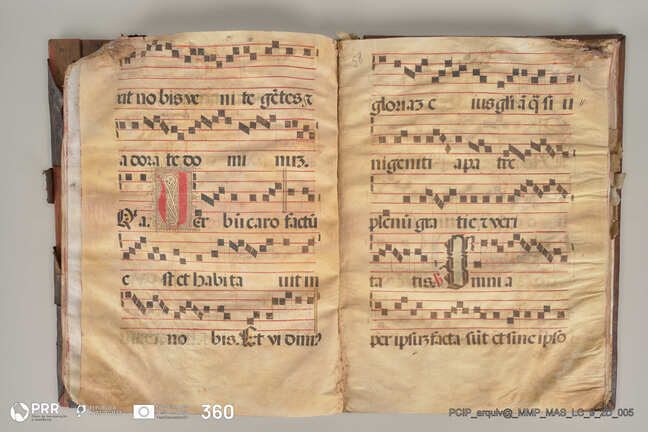 xit no bis ve ni te gētes ⁊
a dora te do mi nuz.
Qa. Ver bū caro factū
e st et habi ta uit in
no bis. Et vidim⁹
58
gloriaz e ius gl'iā q̄ si u
nigeniti a pa tre
plenū gra tie ⁊ veri
ta tis ℣ Omni a
per ipsuz facta sūt et sine ipso
PRR
360
PCIP_arquiv@_MMP_MAS_LC_6_2D_005